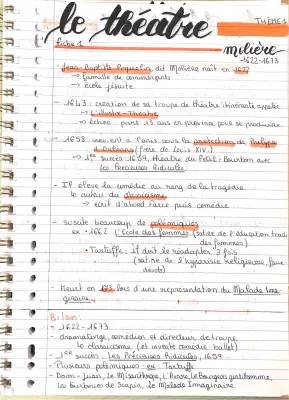 le théâtre
THÈME 1
fiche 1
molière
-1622-1673
- Jean-Baptiste Poquelin, dit Molière naît en 1622
↳ famille de commerçants
↳ école jésuite
- 1643 : création de sa troupe de théâtre itinérante appelée
↳ L'Illustre-Théâtre
↳ échec : part 13 ans en province pour se produire
- 1658 : revient à Paris sous la protection de Philippe
d'Orléans (frère de Louis XIV)
↳ 1er succès : 1659, théâtre du Petit-Bourbon avec
Les Précieuses Ridicules
- Il élève la comédie au rang de la tragédie
↳ auteur du classicisme
↳ écrit d'abord farce puis comédie
- suscite beaucoup de polémiques
ex : 1662 L'École des femmes (satire de l'éducation trad
des femmes)
• Tartuffe : il doit le réadapter 3 fois
(satire de l'hypocrisie religieuse, faux
dévots)
- Meurt en 1673 lors d'une représentation du Malade Ima
ginaire.
Bilan :
- 1622-1673
- dramaturge, comédien et directeur de troupe
↳ classicisme (et invente comédie-ballet)
- 1er succès : Les Précieuses Ridicules, 1659
- Plusieurs polémiques : ex Tartuffe
- Dom-Juan, Le Misanthrope, L'Avare, Le Bourgeois gentilhomme,
Les Fourberies de Scapin, Le Malade Imaginaire